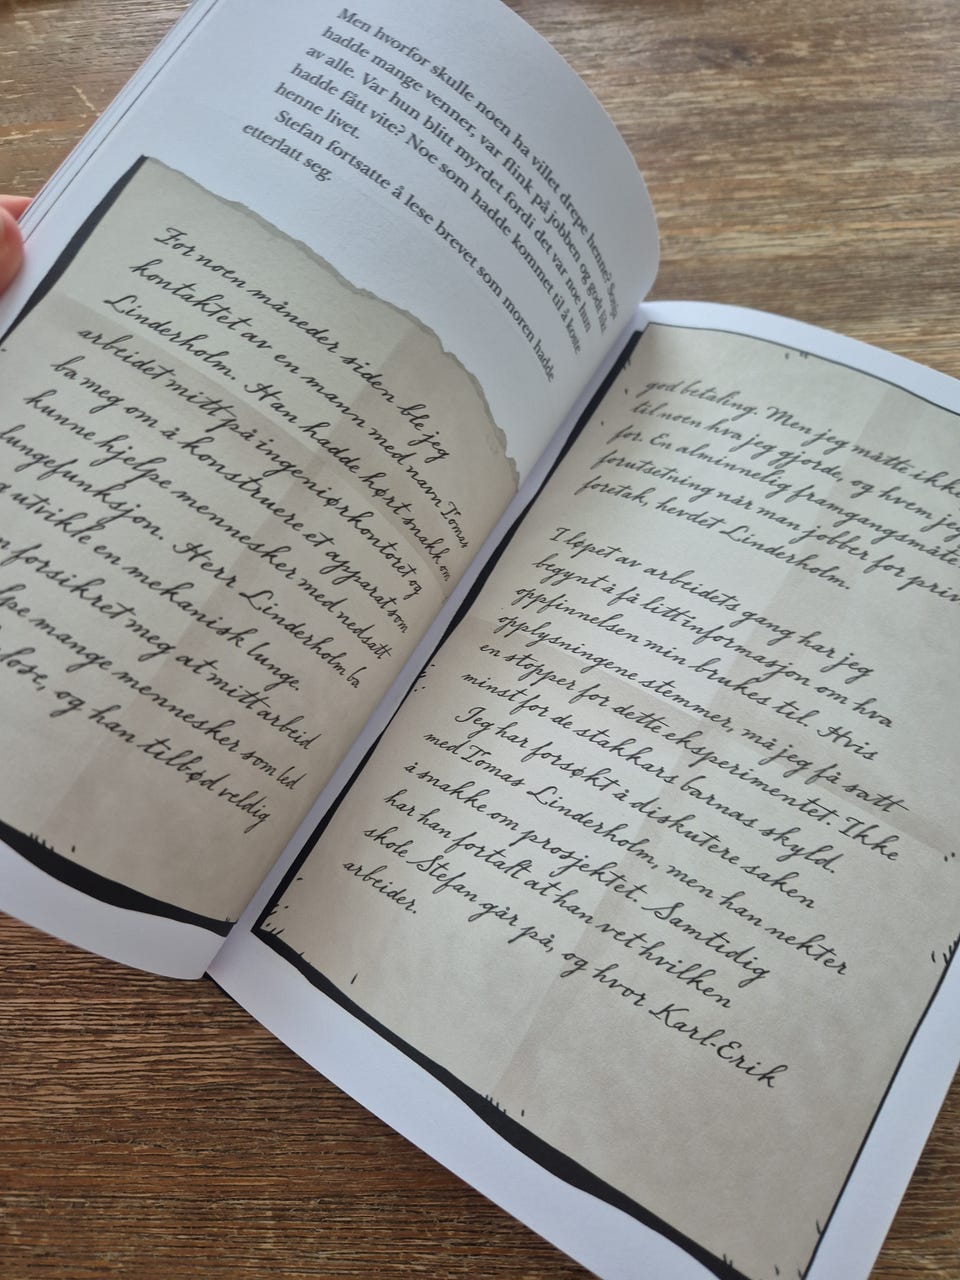 Men hvorfor skulle noen ha villet drepe henne? Sonja
hadde mange venner, var flink på jobben og godt likt
av alle. Var hun blitt myrdet fordi det var noe hun
hadde fått vite? Noe som hadde kommet til å koste
henne livet.
Stefan fortsatte å lese brevet som moren hadde
etterlatt seg.
For noen måneder siden ble jeg
kontaktet av en mann med navn Tomas
Linderholm. Han hadde hørt snakk om
arbeidet mitt på ingeniørkontoret og
ba meg om å konstruere et apparat som
kunne hjelpe mennesker med nedsatt
lungefunksjon. Herr Linderholm ba
utvikle en mekanisk lunge.
forsikret meg at mitt arbeid
mange mennesker som led
og han tilbød veldig
god betaling. Men jeg måtte ikke
til noen hva jeg gjorde, og hvem jeg
for. En alminnelig framgangsmåte
forutsetning når man jobber for
foretak, hevdet Linderholm.
I løpet av arbeidets gang har jeg
begynt å få litt informasjon om hva
oppfinnelsen min brukes til. Hvis
opplysningene stemmer, må jeg få satt
en stopper for dette eksperimentet. Ikke
minst for de stakkars barnas skyld.
Jeg har forsøkt å diskutere saken
med Tomas Linderholm, men han nekter
å snakke om prosjektet. Samtidig
har han fortalt at han vet hvilken
skole Stefan går på, og hvor Karl-Erik
arbeider.